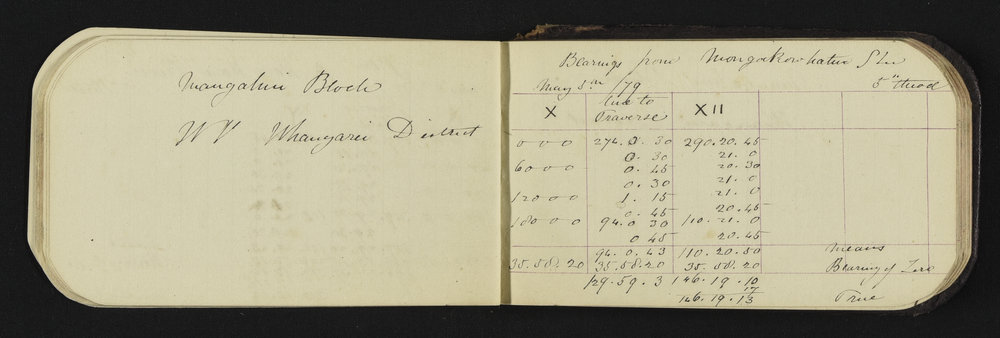 Mangahui Block
W V Whangarei District
Bearings from Mongakowhatin Stn
May 5th /79 5" theod
X Line to Traverse XII
0 0 0 274. 0. 30 290. 20. 45
0. 30 21. 0
60 0 0 0. 45 20. 30
0. 30 21. 0
120 0 0 1. 15 21. 0
0. 45 20. 45
180 0 0 94. 0 30 110. 21. 0
0 45 20. 45
94. 0. 43 110. 20. 50 means
35. 58. 20 35. 58. 20 35. 58. 20 Bearing of Zero
129. 59. 3 146. 19. 10 True
17
146. 19. 13